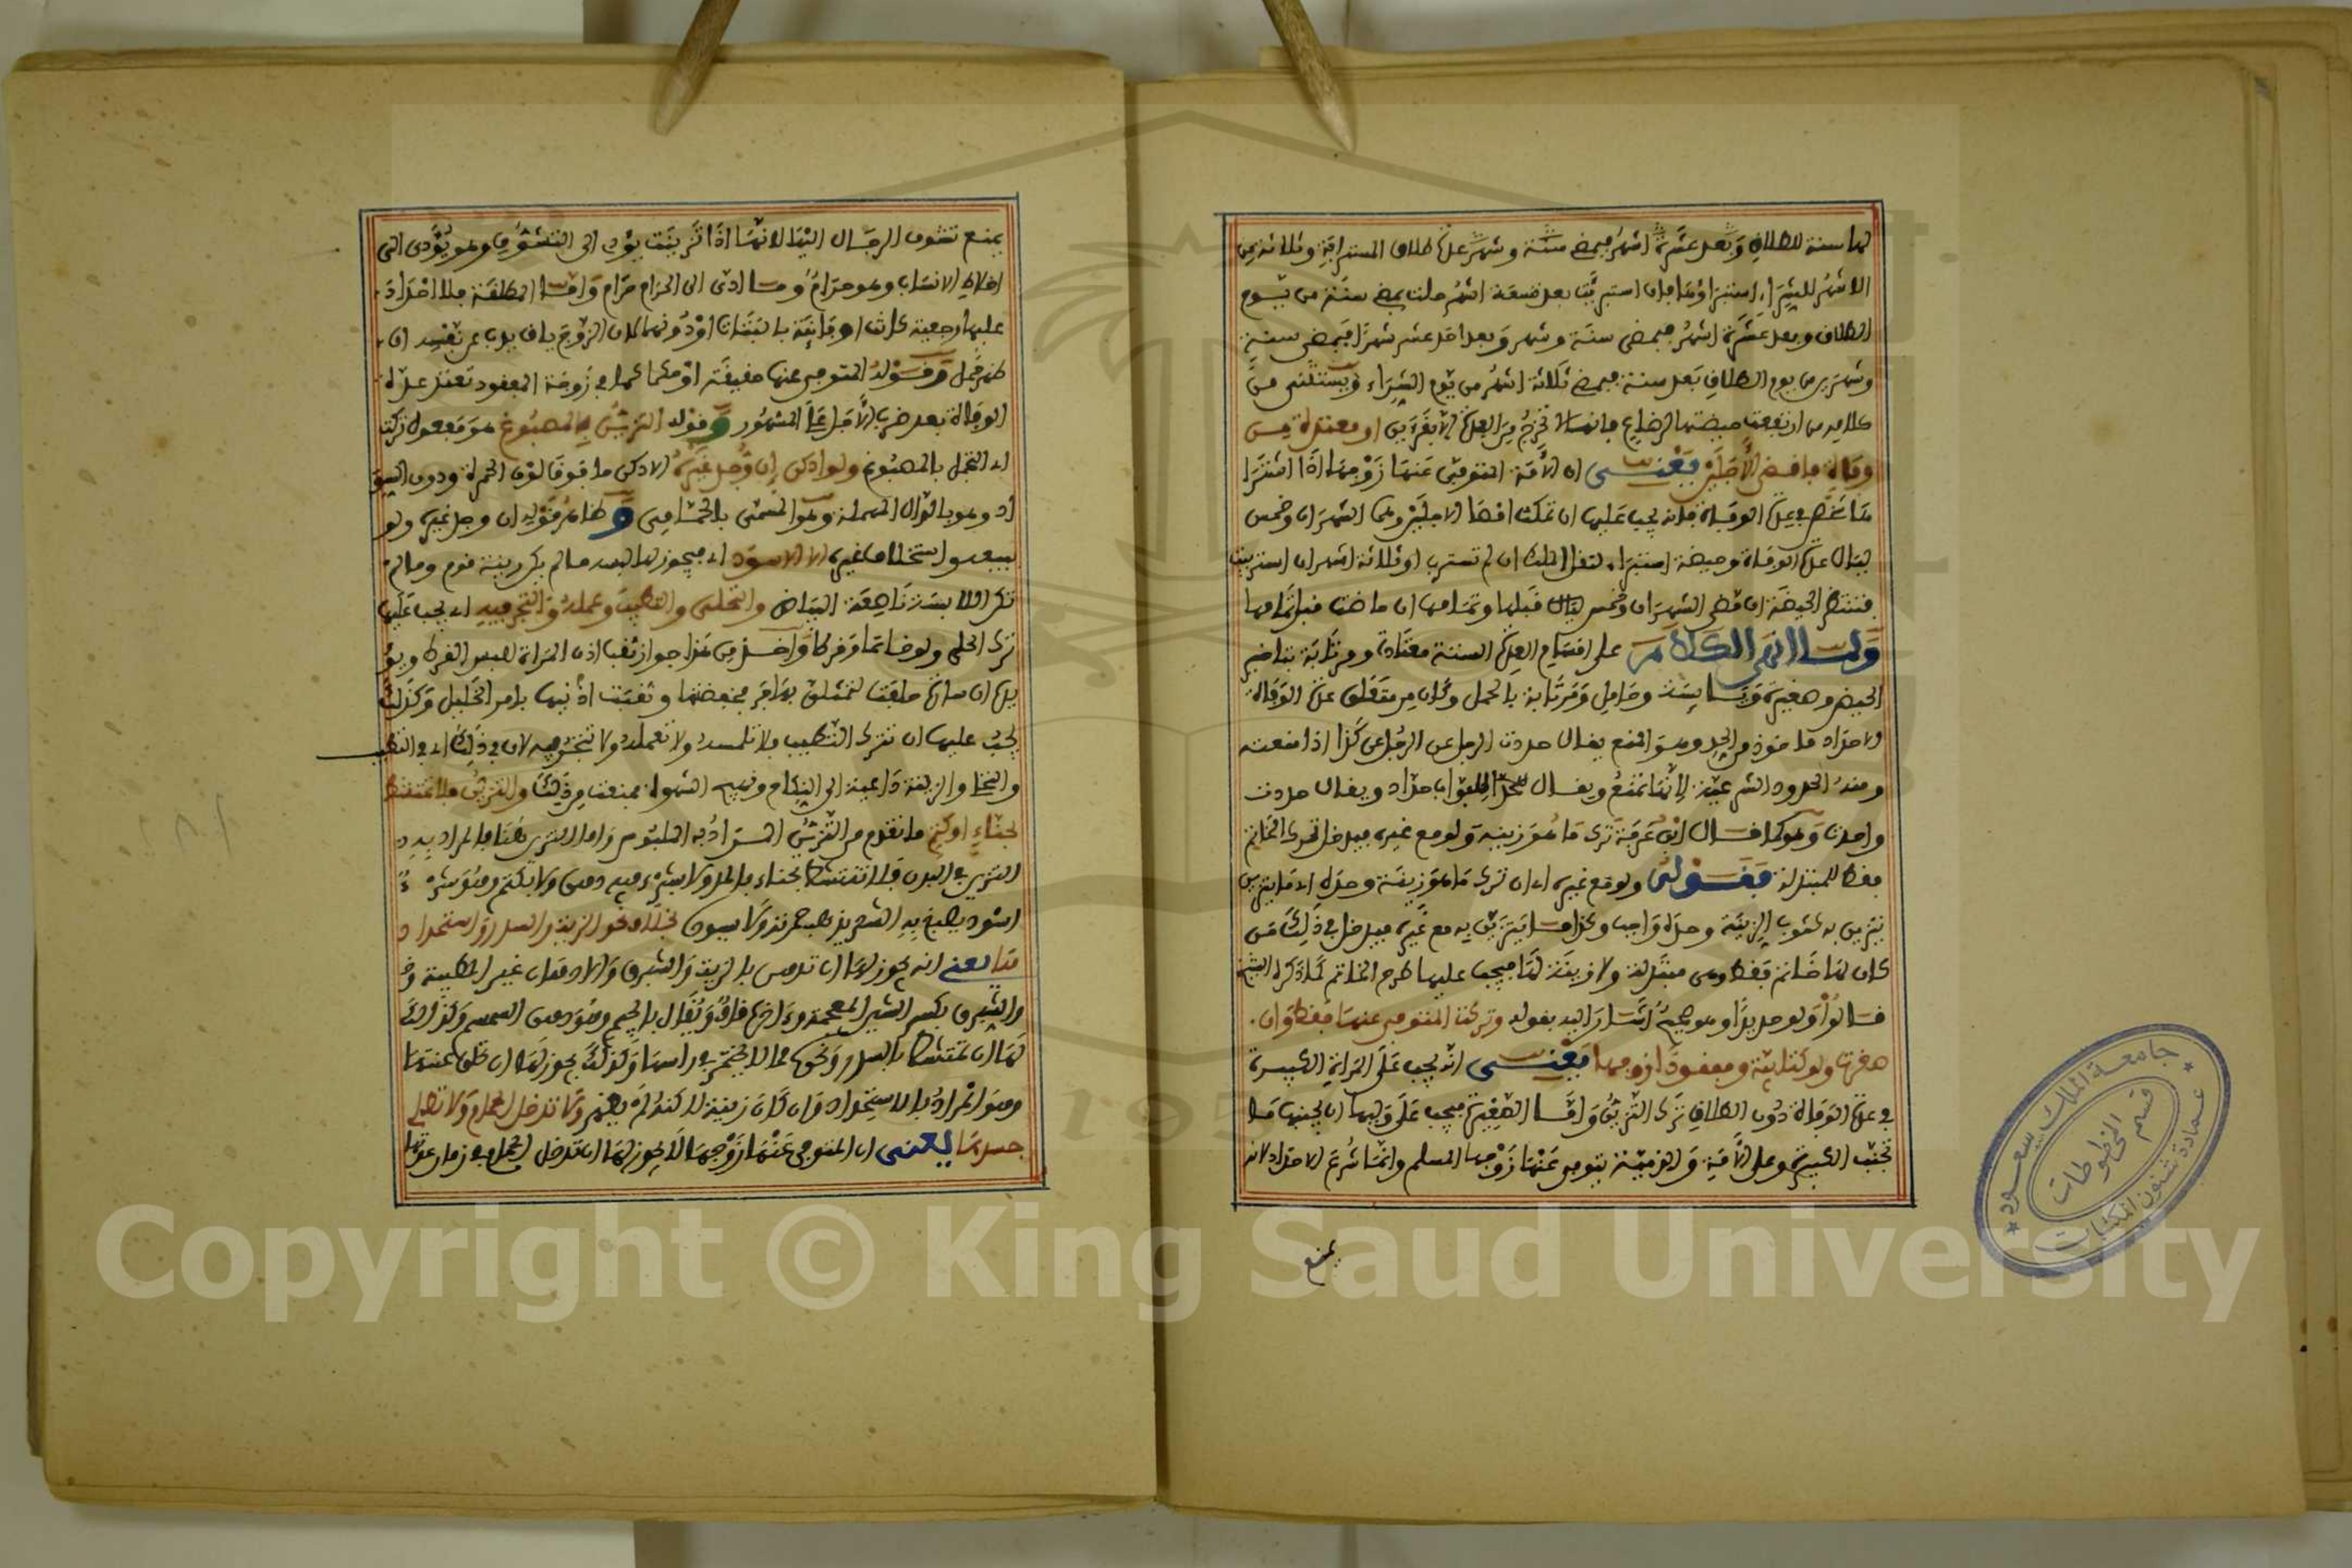 لها سنة للطلاق وبعد عشرة اشهر فبمضي سنة وشهر عدة طلاق المسترابة وثلاثة من
الاشهر للشراء استبراؤها فان استبريت بعد تسعة اشهر حلت بمضي سنة من يوم
الطلاق وبعد عشرة اشهر فبمضي سنة وشهر وبعد احد عشر شهرا فبمضي سنة
وشهرين من يوم الطلاق وبعد سنة فبمضي ثلاثة اشهر من يوم الشراء ويستثنى من
كلامه من ارتفعت حيضتها لرضاع فانها لا تخرج من العدة الا بقرءين او معتدة من
وفاة فاقصى الأجلين يعنى ان الأمة المتوفى عنها زوجها اذا اشترا
ها شخص في عدة الوفاة فانه يجب عليها ان تمكث اقصا الاجلين وهما الشهران وخمس
ليال عدة الوفاة وحيضة استبراء لنقل الملك ان لم تسترب او ثلاثة اشهر ان استريبت
فتنتظر الحيضة ان تمضى الشهران وخمس ليال قبلها وتمامها ان حاضت قبل تمامها
ولما انهى الكلام على اقسام العدة الستة معتادة ومرتابة بتاخير
الحيض وصغيرة ويائسة وحامل ومرتابة بالحمل وكان من متعلق عدة الوفاة
الاحداد ماخوذ من الحد وهو المنع يقال حددت الرجل عن الرجل عن كذا اذا منعته
ومنه الحدود الشرعية لانها تمنع ويقال احداد ويقال حددت
واحدت وهو كما قال ابن عرفة ترك ما هو زينة ولو مع غيره فيدخل ترك الخاتم
فقط للمبتذلة فقولنا ولو مع غيره اي ان ترك ما هو زينة وحده اي ما يتزين
يتزين به كثوب الزينة وحده واجب وكذا ما يتزين به مع غيره فيدخل في ذلك من
كان لها خاتم فقط وهي مبتذلة ولا زينة لها فيجب عليها طرح الخاتم كما ذكره الشيخ
قالوا ولو حديدا وهو صحيح اشار اليه بقوله وتركت المتوفى عنها فقط وان
صغرت ولو كتابية ومفقودا زوجها يعنى انه يجب على المراة الكبيرة
في عدة الوفاة دون الطلاق ترك التزين واما الصغيرة فيجب على وليها ان يجنبها ما
تجتنب الكبيرة وعلى الأمة والذمية يتوفى عنها زوجها المسلم وانما شرع الاحداد لانه
يمنع
يمنع تشوف الرجال اليها لانها اذا تزينت يؤدى الى التشوف وهو يؤدى الى
اختلاط الانساب وهو حرام وما ادى الى الحرام حرام واما المطلقة فلا احداد
عليها رجعية كانت او بائنة بالبتات او دونها لان الزوج باق يذب عن نفسه ان
ظهر حمل وقوله المتوفى عنها حقيقة او حكما كما في زوجة المفقود تعتد عدة
الوفاة بعد ضرب الأجل على المشهور وقوله التزين بالمصبوغ هو مفعول تركت
اي التجمل بالمصبوغ ولو ادكن إن وجد غيره الادكن ما فوق لون الحمرة ودون السو
اد وهو بالدال المهملة وهو المسمى بالحمامي وظاهر قوله ان وجد غيره ولو
ببيعه واستخلاف غيره الا الاسود اي فيجوز لها لبسه ما لم يكن زينة قوم وما لم
تكن اللابسة ناصعة البياض والتحلي والتطيب وعمله والتجر فيه اي يجب عليها
ترك الحلي ولو خاتما وقرطا واخذ من هذا جواز ثقب اذن المراة للبس القرط ويؤ
يده ان سارة حلفت لتمثلن بهاجر فخفضتها وثقبت اذنيها بامر الخليل وكذلك
يجب عليها ان تترك التطيب فلا تلمسه ولا تعمله ولا تتجر فيه لان في ذلك اي في التطيب
والتحلي والزينة داعية الى النكاح وتهييج الشهوة فمنعت من ذلك والتزين فلا تمتشط
بحناء او كتم ما تقدم من التزين المراد به الملبوس واما التزين هنا فالمراد به
التزين في البدن فلا تمتشط بحناء بالمد ولا شيء فيه دهن ولا بكتم وهو شيء
اسود يصبغ به الشعر يذهب حمرته ولا يسوده بخلاف نحو الزيت والسدر واستحداد
ها يعنى انه يجوز لها ان تدهن بالزيت والشيرق والادهان غير المطيبة
والشيرق بكسر الشين المعجمة وءاخره قاف ويقال بالجيم وهو دهن السمسم وكذا لك
لها ان تمتشط بالسدر ونحوه مما لا يختمر في راسها وكذلك يجوز لها ان تحلق عانتها
وهو المراد بالاستحداد وان كان زينة لاكنه لم يظهر ولا تدخل الحمام ولا تطلي
جسدها يعنى ان المتوفى عنها زوجها لا يجوز لها ان تدخل الحمام في زمان عدتها
جامعة الملك سعود
قسم المخطوطات
عمادة شئون المكتبات
Copyright © King Saud University